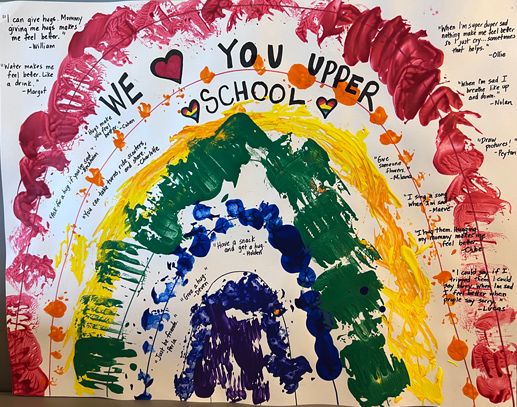 "I can give hugs. Mommy
giving me hugs makes
me feel better."
-William
"Water makes me
feel better. Like
a drink."
-Margot
WE YOU UPPER
SCHOOL
"When I'm super duper sad
nothing make me feel better
so I just cry... sometimes
that helps."
-Ollie
"When I'm sad I
breathe like up
and down."
-Nolan
"Draw
pictures!"
-Peyton
"Hugs make
you feel
better."
-Cohen
"Ask for a hug if you're sad."
"You can take turns, ride scooters,
and share."
-Charlotte
"Give
someone
flowers."
-Milana
"I sing a song
when I'm sad."
-Maeve
"I hug them. Hugging
my mommy makes me
feel better."
"Have a snack
and get a hug."
-Holden
"Give a hug."
"Just be friends."
"I could say if I
when I'm sad.
I feel better when
people say sorry."
-Lucas